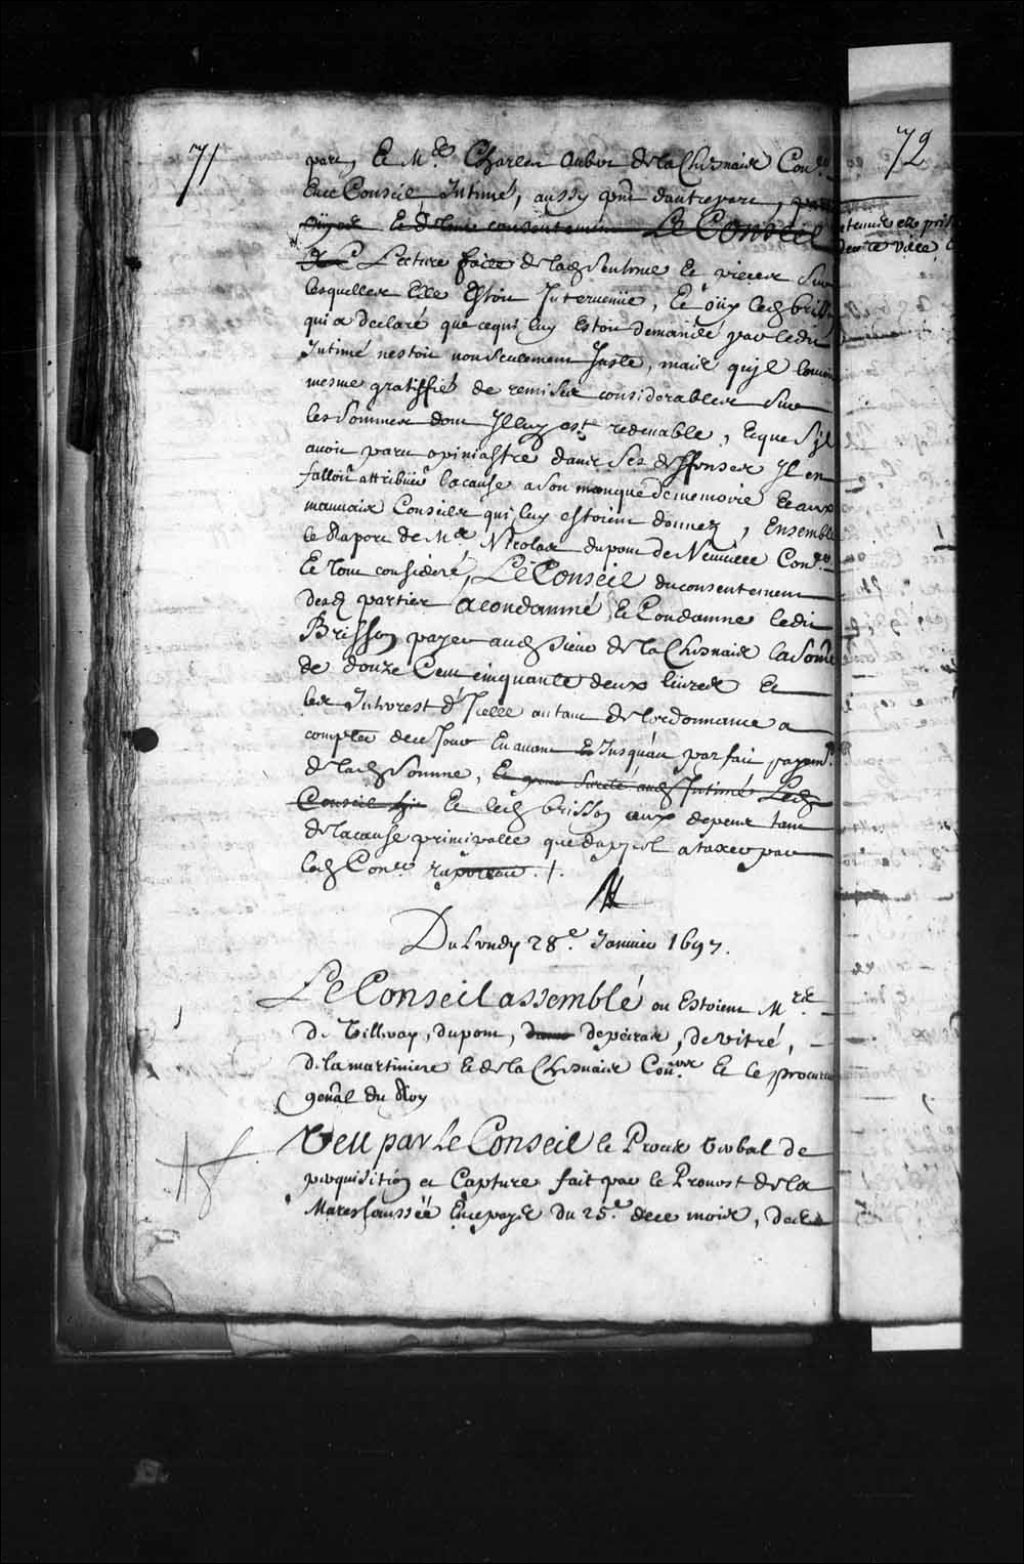 71
part, Et Me. Charles Aubert de la Chesnaie Coner
en ce Conseil Intimé, aussy pnt dautrepart,
Et de leur consentement Le Conseil
Lecture faite de lad Sentence Et pieces Sur
lesquelles Elle Estoit Intervenüe, Et oüy led brisson
qui a declaré que cequi luy Estoit demandé par ledit
Intimé nestoit non seulement Juste, mais quil lauoit
mesme gratiffié de remises considerables Sur
les Sommes dont Il luy est redeuable, Et que Sil
auoit paru opiniastre dans Ses deffenses Il en
falloit attribüer la cause a son manque de memoire Et aux
mauuais Conseils qui luy estoient donnez, Ensemble
le Raport de Me. Nicolas dupont de Neuuille Coner
Et Tout consideré, Le Conseil du consentement
desd parties a condamné, & Condamne ledit
Brisson payer aud Sieur de la Chesnaie la Some
de douze Cent cinquante deux liures Et
les Interest d'Icelle au taux de lordonnance a
compter de ce Jour En auant Jusquau parfait payemt.
de lad Somme, Et pour Sureté aud Intimé Led
Conseil Et led brisson aux depens tant
de la cause principalle que dapel a taxer par
led Coner raporteur ./.
Du Lundy 28e. Januier 1697.
Le Conseil assemblé ou Estoient Mres
de Villeray, dupont, depeiras, de vitré,
de la martiniere Et de la Chesnaie Coners. Et le procureur
genal du Roy
Veu par Le Conseil le Proces Verbal de
perquisition et Capture fait par le Preuost de la
Mareschaussée En ce pays du 25e. de ce mois,
72